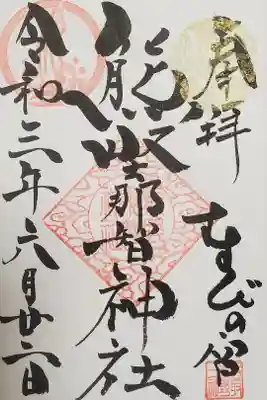 奉拝
むすびの宮
熊野那智神社
令和三年六月廿二日